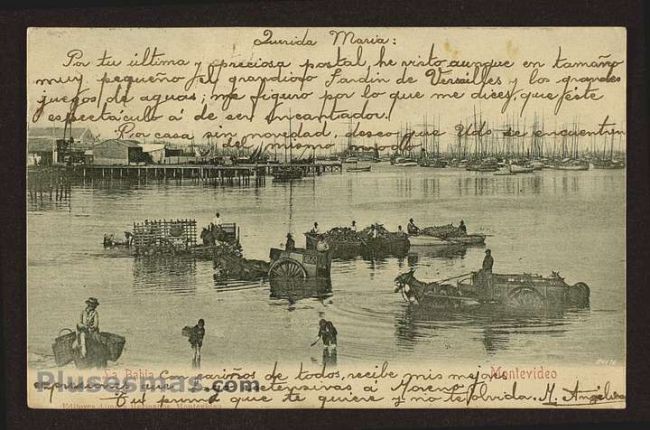 Querida Maria:
Por tu última y preciosa postal, he visto aunque en tamaño
muy pequeño el grandioso Jardin de Versailles y los grandes
juegos de aguas; me figuro por lo que me dices, que éste
espectáculo á de ser encantador.
Por casa sin novedad, deseo que Uds se encuentren
del mismo modo
La Bahia
Montevideo
Con cariños de todos, recibe mis mejores
que extensivas á
Plusesmas.com
Tu prima que te quiere y no te olvida. M. Angélica
Montevideo